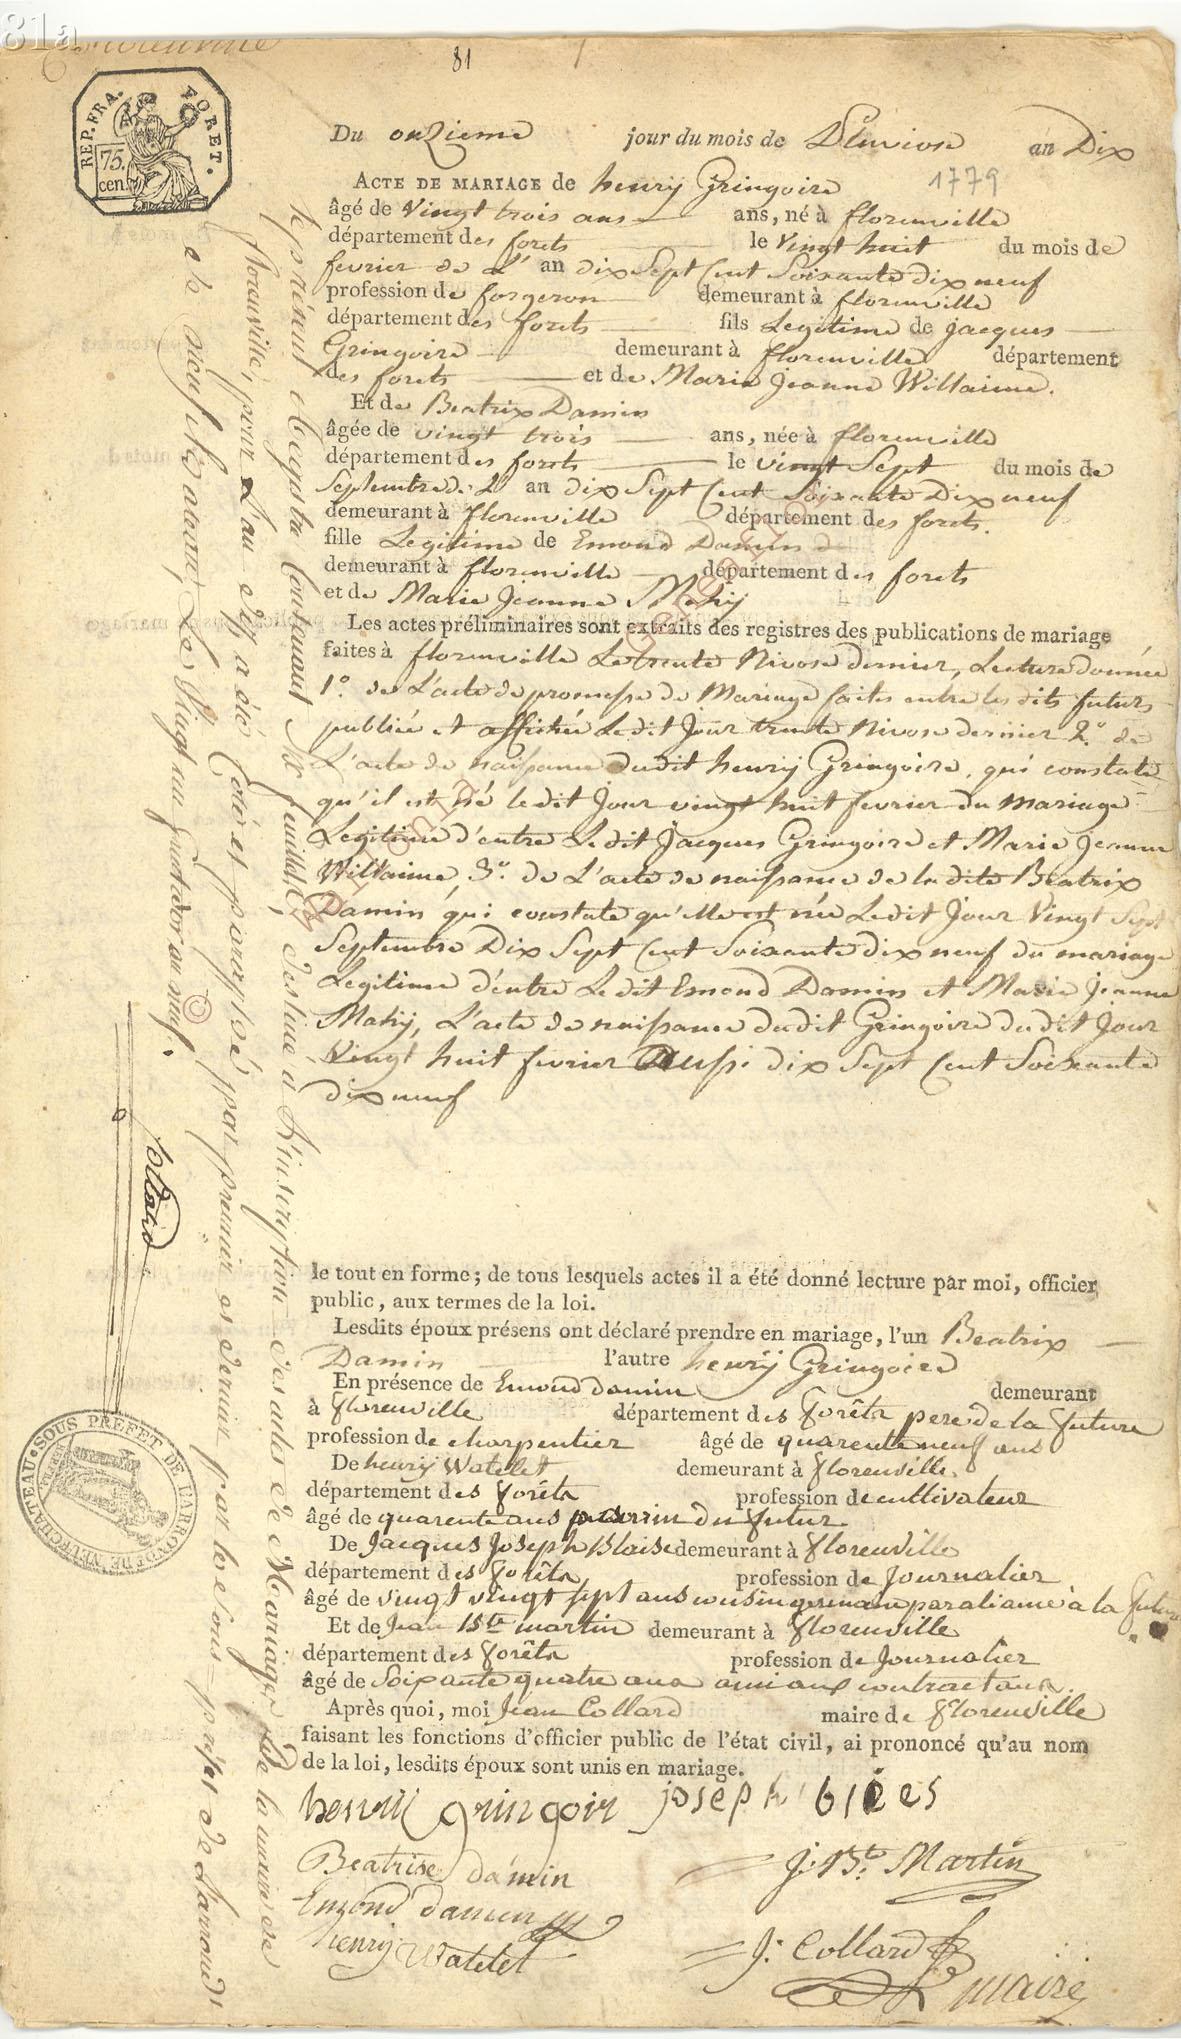 81a
81
REP. FRA. FORET.
75. cen.
Du onzieme jour du mois de Pluviose an Dix
ACTE DE MARIAGE de henry Gringoire 1779
âgé de Vingt trois ans ans, né à florenville
département des forets le Vingt huit du mois de
fevrier de L' an dix Sept Cent Soixante dix neuf
profession de forgeron demeurant à florenville
département des forets fils Legitime de jacques
Gringoire demeurant à florenville département
des forets et de Marie jeanne Willaime.
Et de Beatrix Damin
âgée de vingt trois ans, née à florenville
département des forets le vingt Sept du mois de
Septembre de L' an dix Sept Cent Soixante Dix neuf
demeurant à florenville département des forets.
fille Legitime de Emond Damin
demeurant à florenville département des forets
et de Marie Jeanne Mahy
Les actes préliminaires sont extraits des registres des publications de mariage
faites à florenville Le trente Nivose dernier, Lecture donnée
1.º de L'acte de promesse de Mariage faites entre les dits futurs
publiée et affichée Le dit Jour trente Nivose dernier 2.º de
L'acte de naissance dudit henry Gringoire, qui constate
qu'il est né le dit Jour vingt huit fevrier du mariage
Legitime d'entre Le dit Jacques Gringoire et Marie Jeanne
Willaime, 3.º de L'acte de naissance de la dite Beatrix
Damin qui constate qu'elle est née Le dit Jour Vingt Sept
Septembre Dix Sept Cent Soixante dix neuf du mariage
Legitime d'entre Le dit Emond Damin et Marie Jeanne
Mahy, L'acte de naissance dudit Gringoire du dit Jour
Vingt huit fevrier Aussi dix Sept Cent Soixante
dix neuf
le tout en forme; de tous lesquels actes il a été donné lecture par moi, officier
public, aux termes de la loi.
Lesdits époux présens ont déclaré prendre en mariage, l'un Beatrix
Damin l'autre henry Gringoire
En présence de Emond damin demeurant
à florenville département des forêts pere de la future
profession de charpentier âgé de quarente neuf ans
De henry Watelet demeurant à florenville.
département des forêts profession de cultivateur
âgé de quarente ans parrin du futur
De Jacques Joseph Blaise demeurant à florenville
département des forêts profession de Journalier
âgé de vingt vingt sept ans cousin germain par aliance à la future
Et de Jean Bte martin demeurant à florenville
département des forêts profession de Journalier
âgé de Soixante quatre ans ami aux contractans.
Après quoi, moi Jean Collard maire de florenville
faisant les fonctions d'officier public de l'état civil, ai prononcé qu'au nom
de la loi, lesdits époux sont unis en mariage.
henrij gringoir joseph blees
Beatrise damin J: Bte. Martin
Emond damin
henry Watelet J: Collard
maire
le présent Registre Contenant Six feuillets, destiné à L'inscription des actes de Mariage de la mairie de
florenville, pour L'an dix a été Coté et paraphé par premier et dernier par le sous préfet de l'arrond.t
Collard
SOUS PREFET DE L'ARROND. DE NEUFCHATEAU